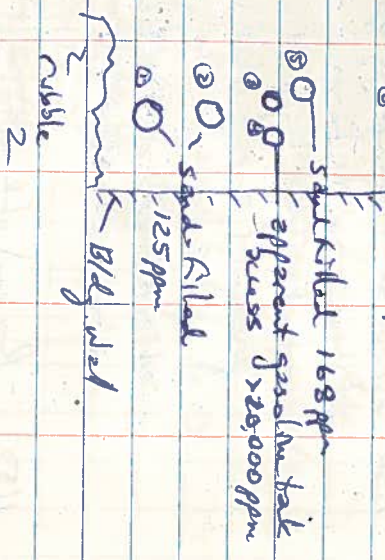 ⑤ Sand filled 168 ppm
③ ④ apparent gasoline tank
access >20,000 ppm
② Sand-filled
① 125 ppm
Bld. Wall
rubble